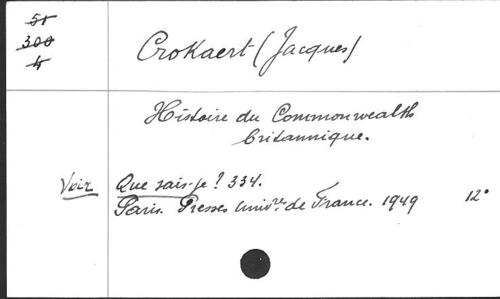 51
300
4
Crokaert (Jacques)
Histoire du Commonwealth
britannique.
Voir Que sais-je? 334.
Paris. Presses Univ.res de France. 1949 12°